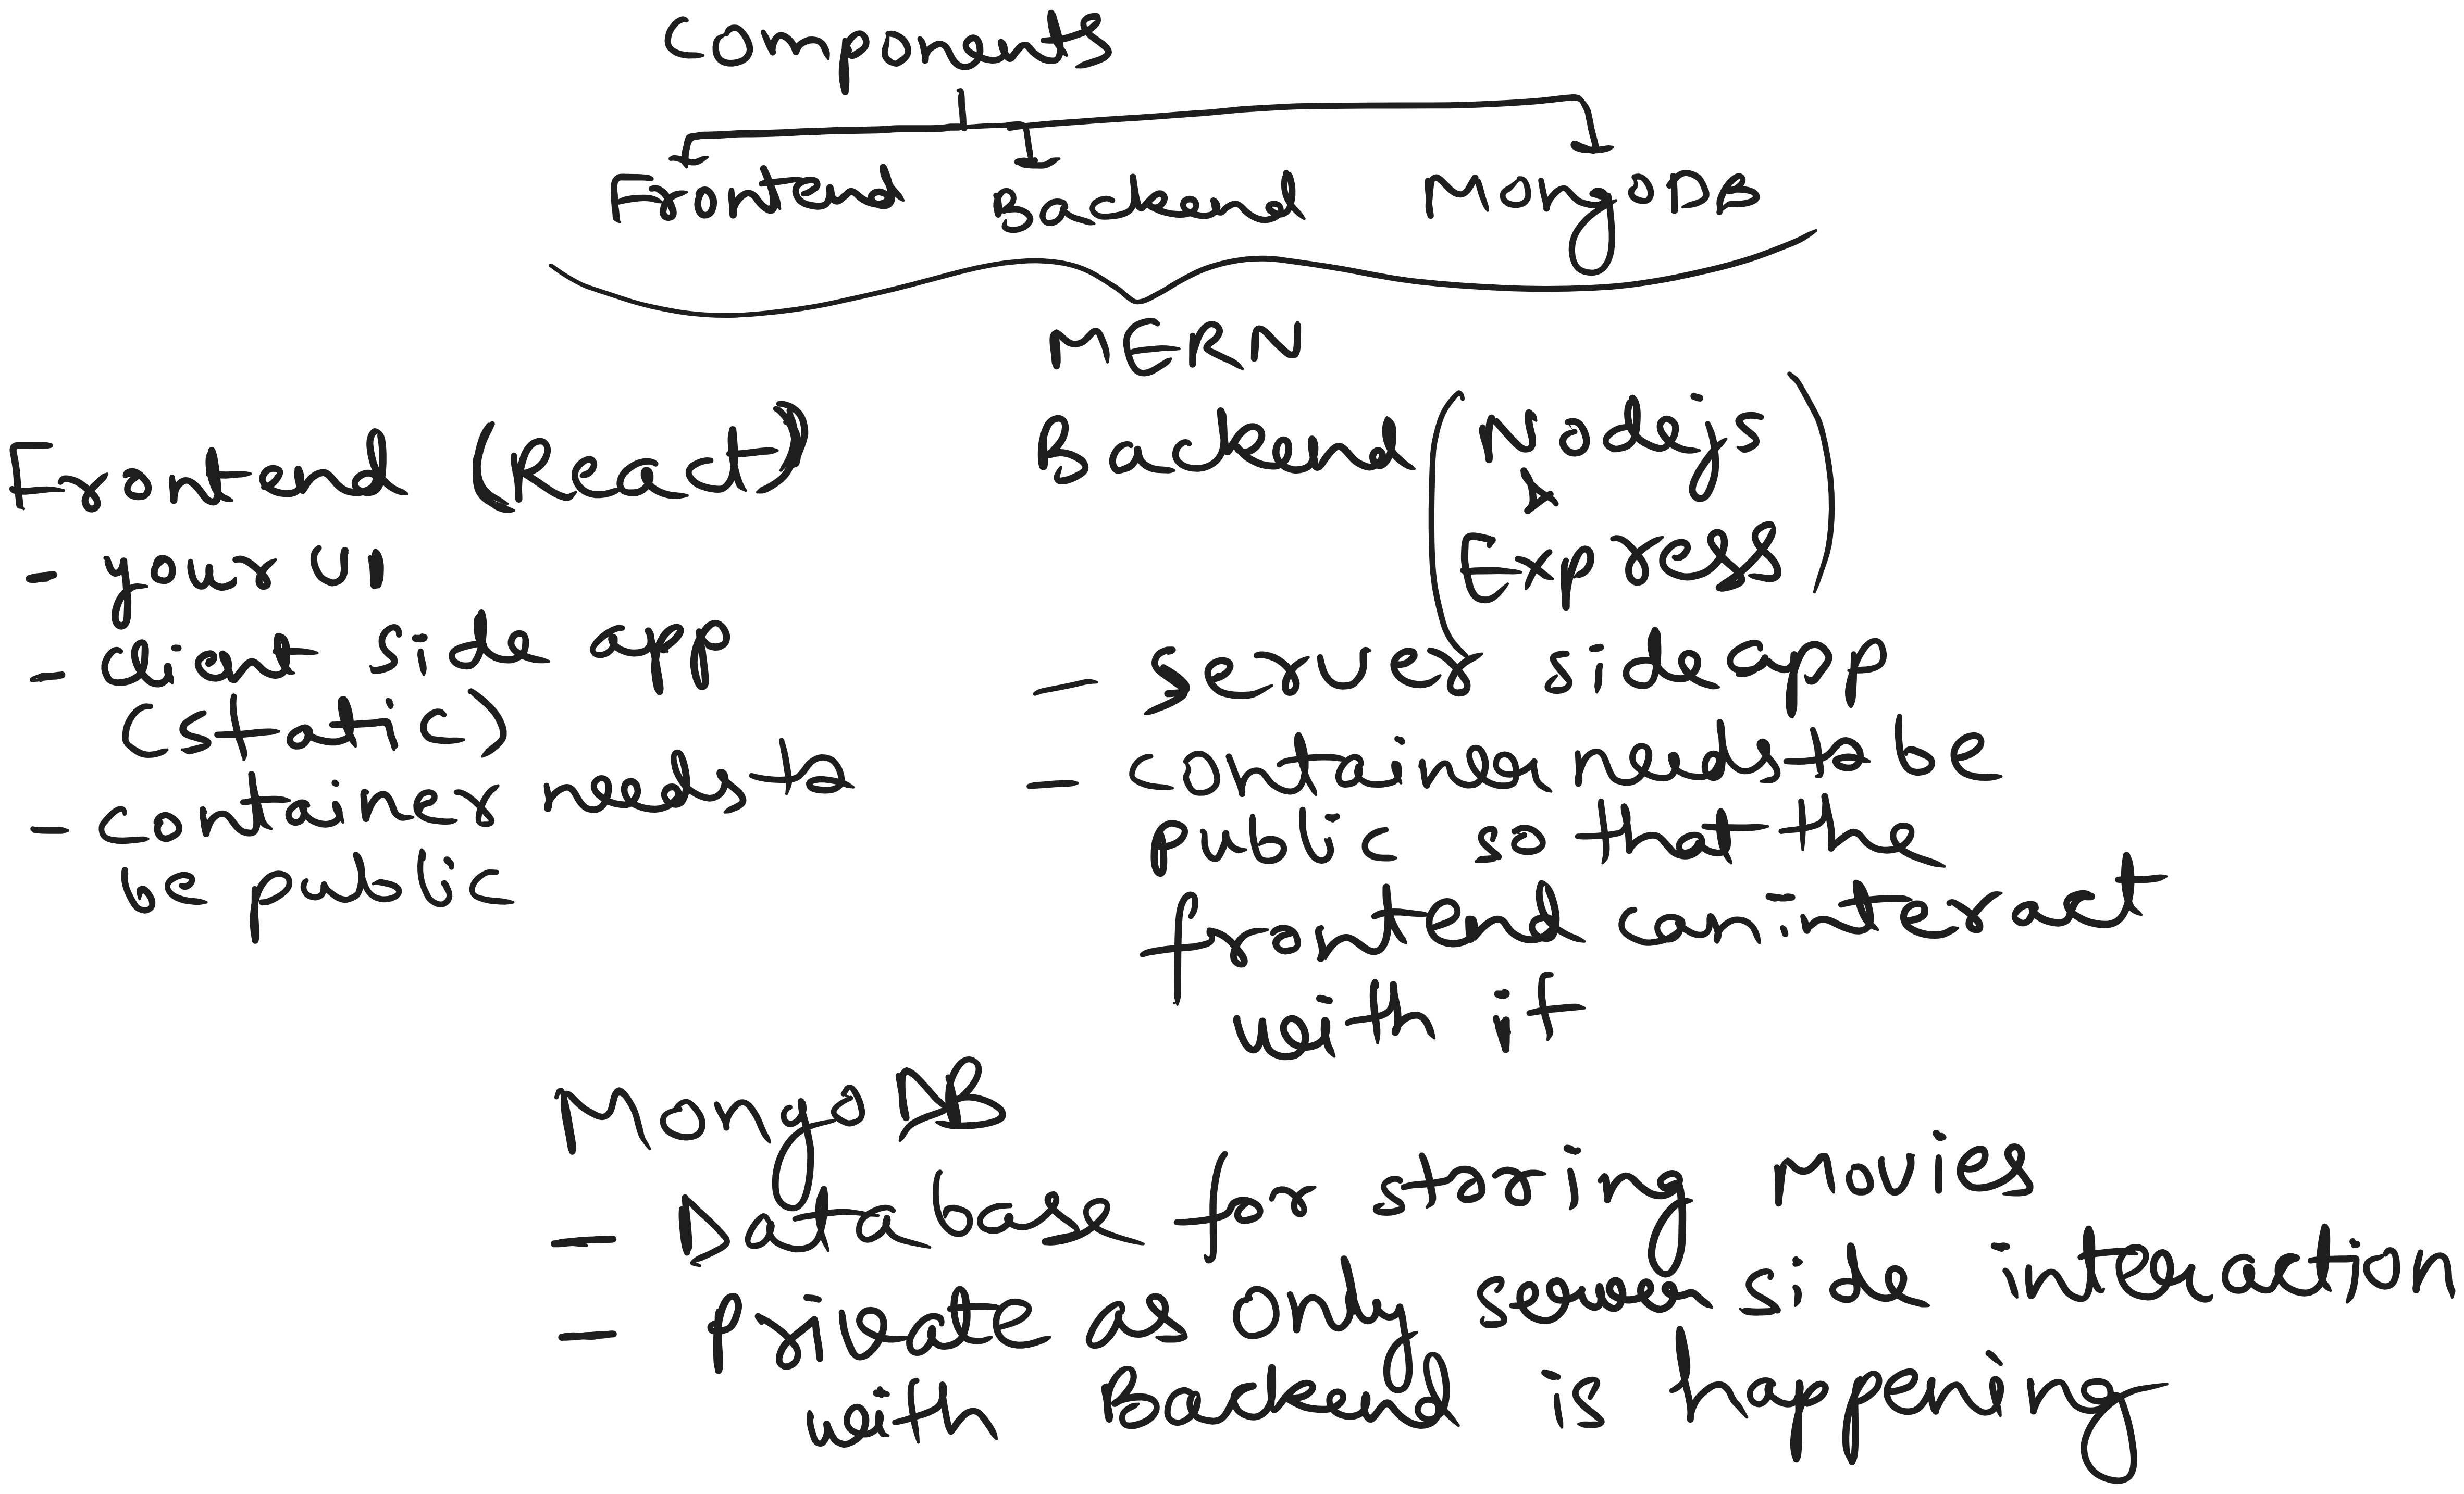 Components
Frontend Backend MongoDB
MERN
Frontend (React)
- your UI
- client side app
(static)
- container needs to
be public
Backend (Nodejs
&
Express)
- Server side app
- container needs to be
public so that the
frontend can interact
with it
MongoDB
- Database for storing movies
- private as only server side interaction
with Backend is happening